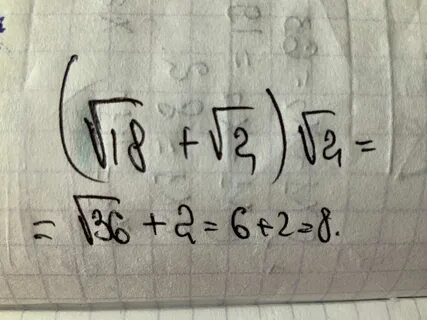 (√18 + √2)√2 =
= √36 + 2 = 6 + 2 = 8.